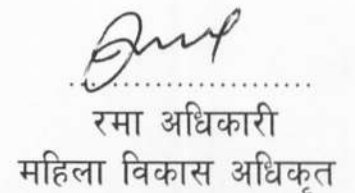 रमा अधिकारी
महिला विकास अधिकृत